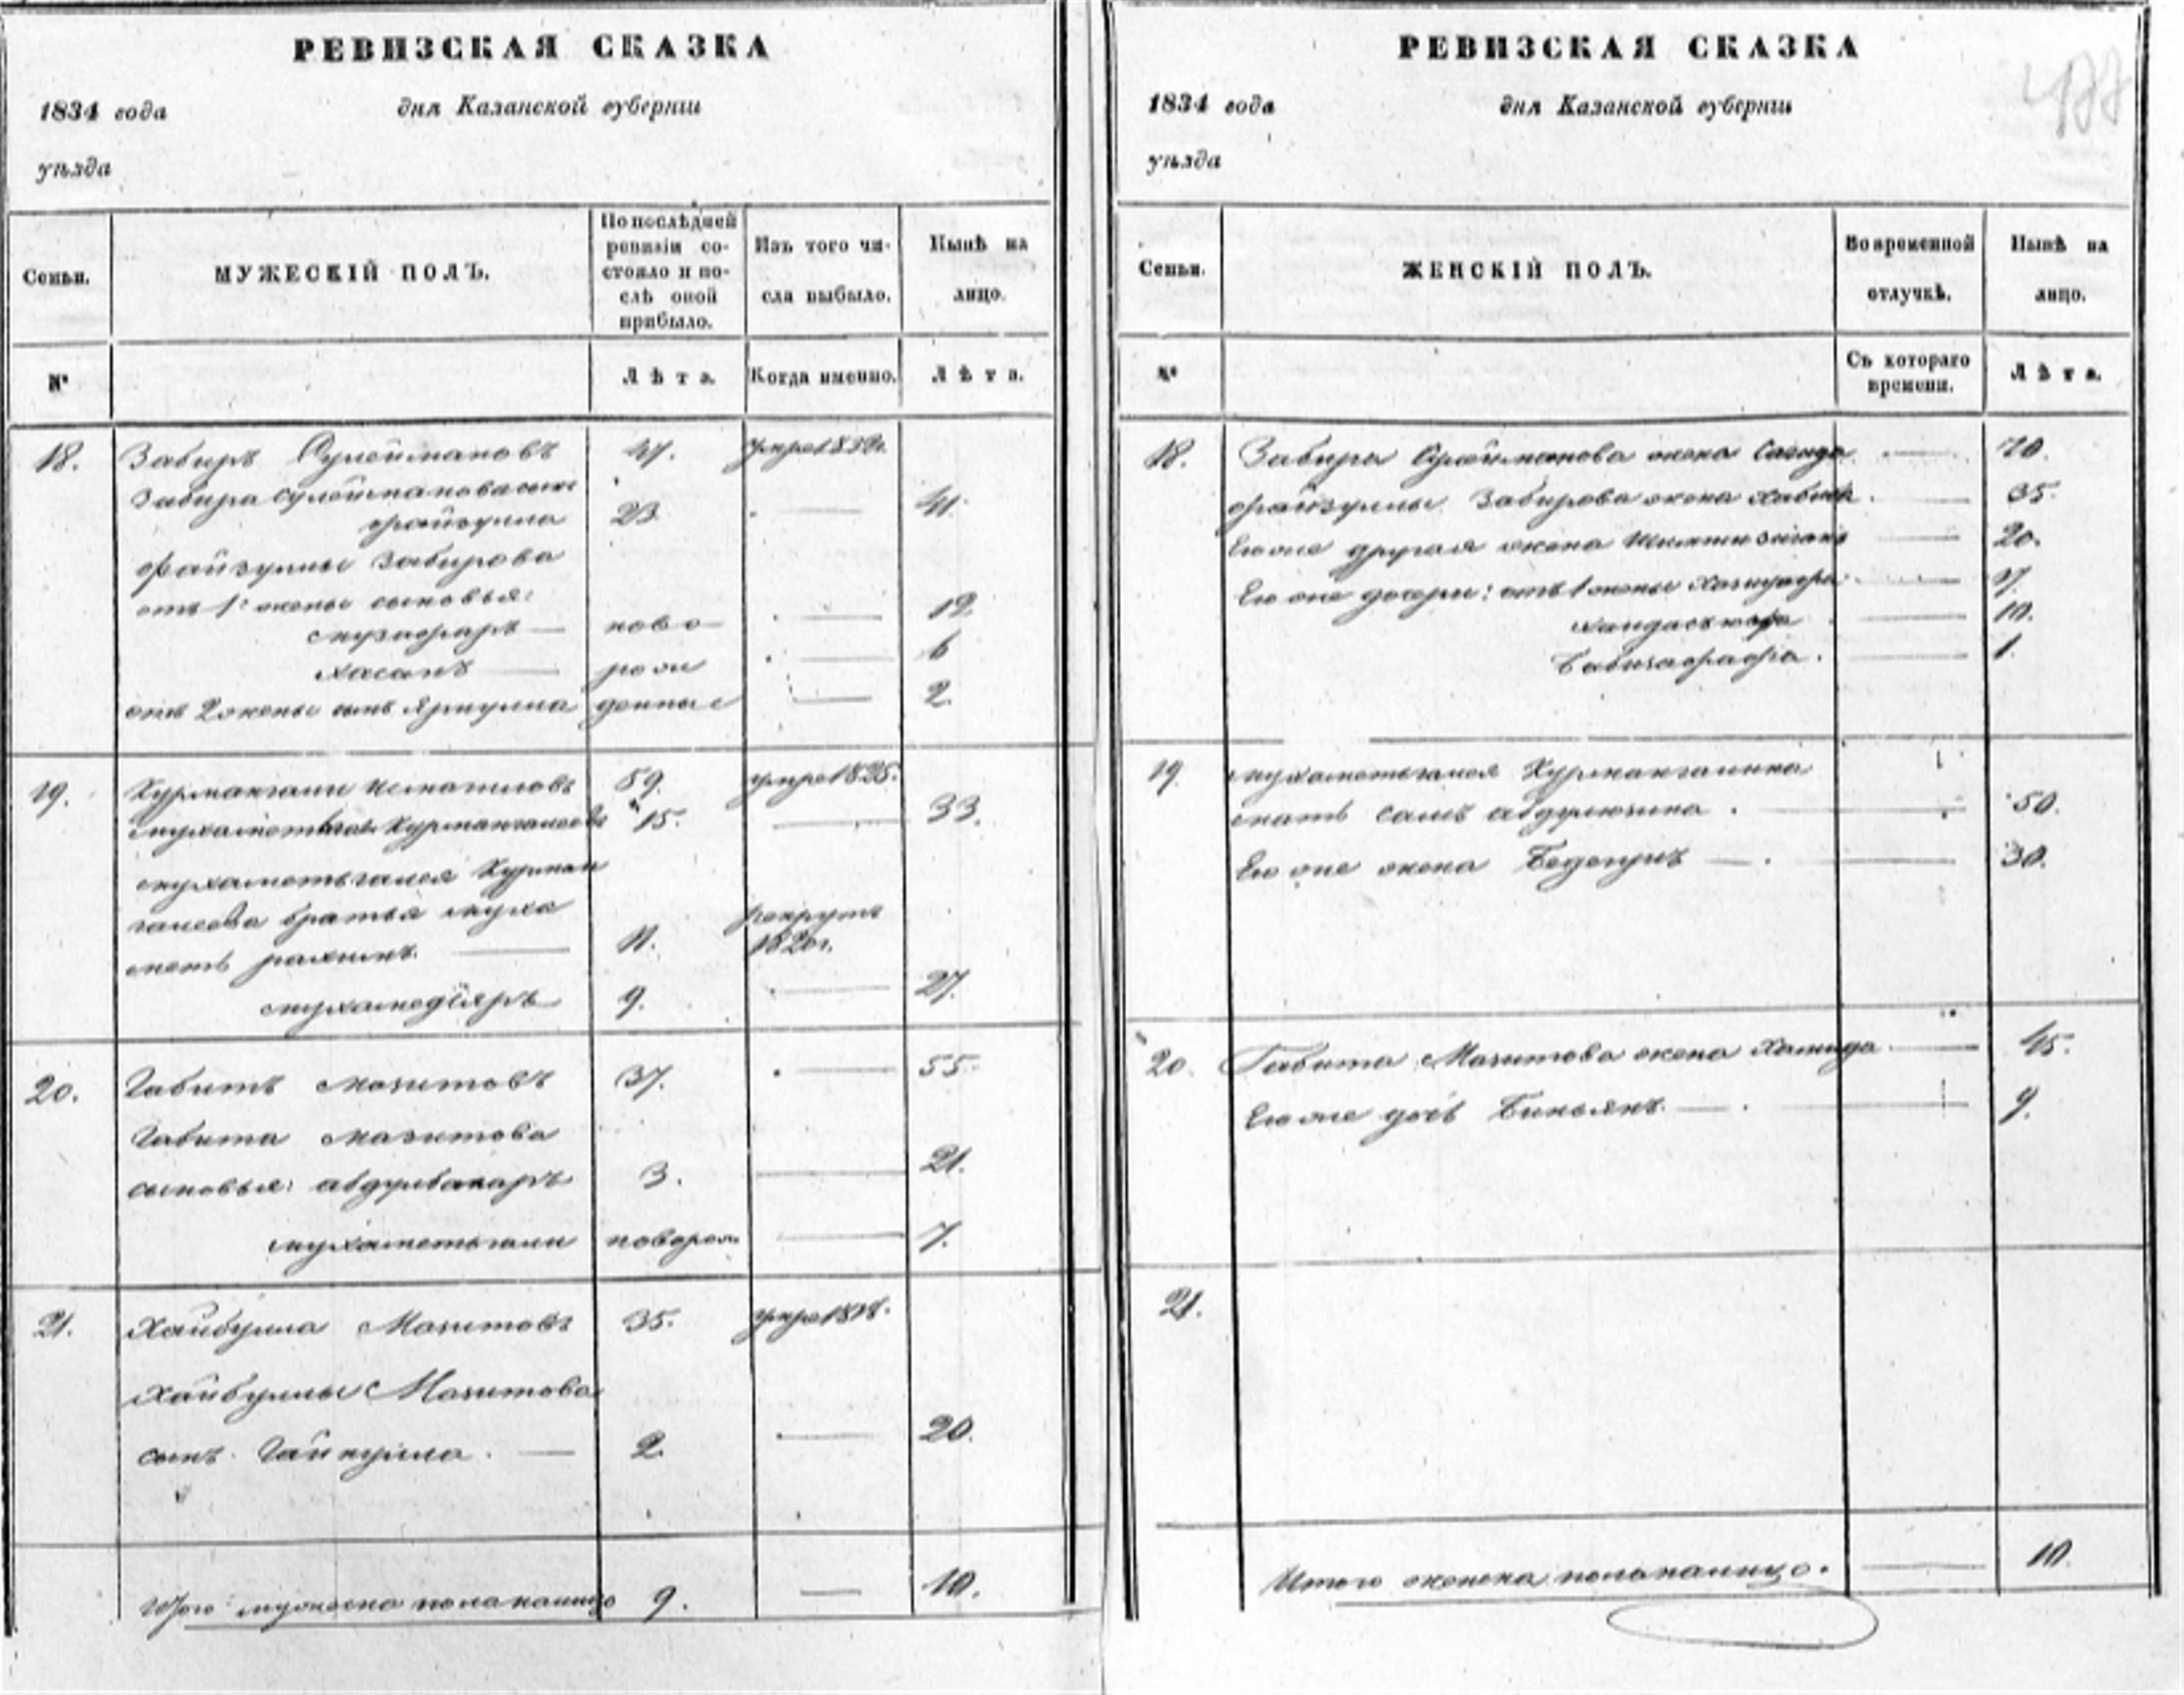 РЕВИЗСКАЯ СКАЗКА
1834 года дня Казанской губернїи
уѣзда
Семьи. МУЖЕСКІЙ ПОЛЪ. По послѣдней ревизіи состояло и послѣ оной прибыло. Изъ того числа выбыло. Нынѣ на лицо.
№ Лѣта. Когда именно. Лѣта.
18. Забиръ Сулеймановъ 47. умре
Забира Сулейманова сынъ
файзулла 23. 41.
файзуллы Забирова
отъ 1й жены сыновья:
музафаръ ново 12.
хасанъ рож 6
отъ 2 жены сынъ Ярмулла денные 2.
19. Курмангали 59. умре 1825.
15. 33.
мухаметьгалея Курман
галеева братья муха рекрутъ
меть рахимъ. 11. 1820г.
мухамедїяръ 9. 27.
20. Габитъ Мазитовъ 37. 55.
Габита мазитова
сыновья: абдулбакаръ 3. 21.
мухаметьгали новорож. 7.
21. Хайбулла Мазитовъ 35. умре
Хайбуллы Мазитова
сынъ Гайнулла. 2. 20.
Итого мужеска пола налицо 9. 10.
РЕВИЗСКАЯ СКАЗКА
1834 года дня Казанской губернїи
уѣзда
Семьи. ЖЕНСКІЙ ПОЛЪ. Во временной отлучкѣ. Нынѣ на лицо.
№ Съ котораго времени. Лѣта.
18. Забира Сулейманова жена Сагида 70.
файзуллы Забирова жена 35.
Его же другая жена 20.
Его же дочери: отъ 1 жены 17.
10.
Бабизафафа. 1.
19. мухаметьгалея Курмангалина
мать абдулкизина. 50.
Его же жена 30.
20. Габита Мазитова жена Хамида 45.
Его же дочь Бикьянъ. 9.
21.
Итого женска пола налицо. 10.